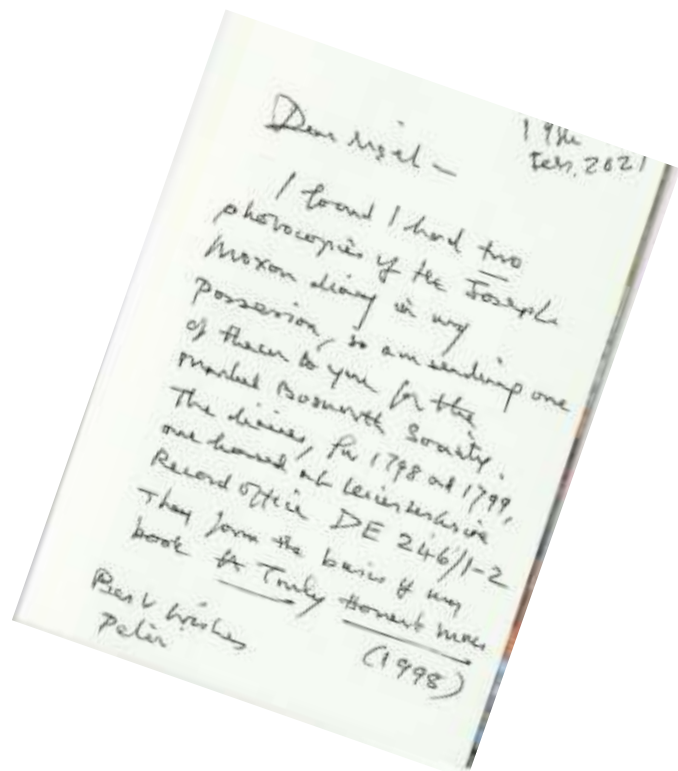 19th
Feb. 2021
Dear Nigel –
I found I had two
photocopies of the Joseph
Moxon diary in my
possession, so am sending one
of them to you for the
Market Bosworth Society.
The diaries, for 1798 and 1799,
are housed at Leicestershire
Record Office DE 246/1-2
They form the basis of my
book A Truly Honest Man
(1998)
Best wishes
Peter